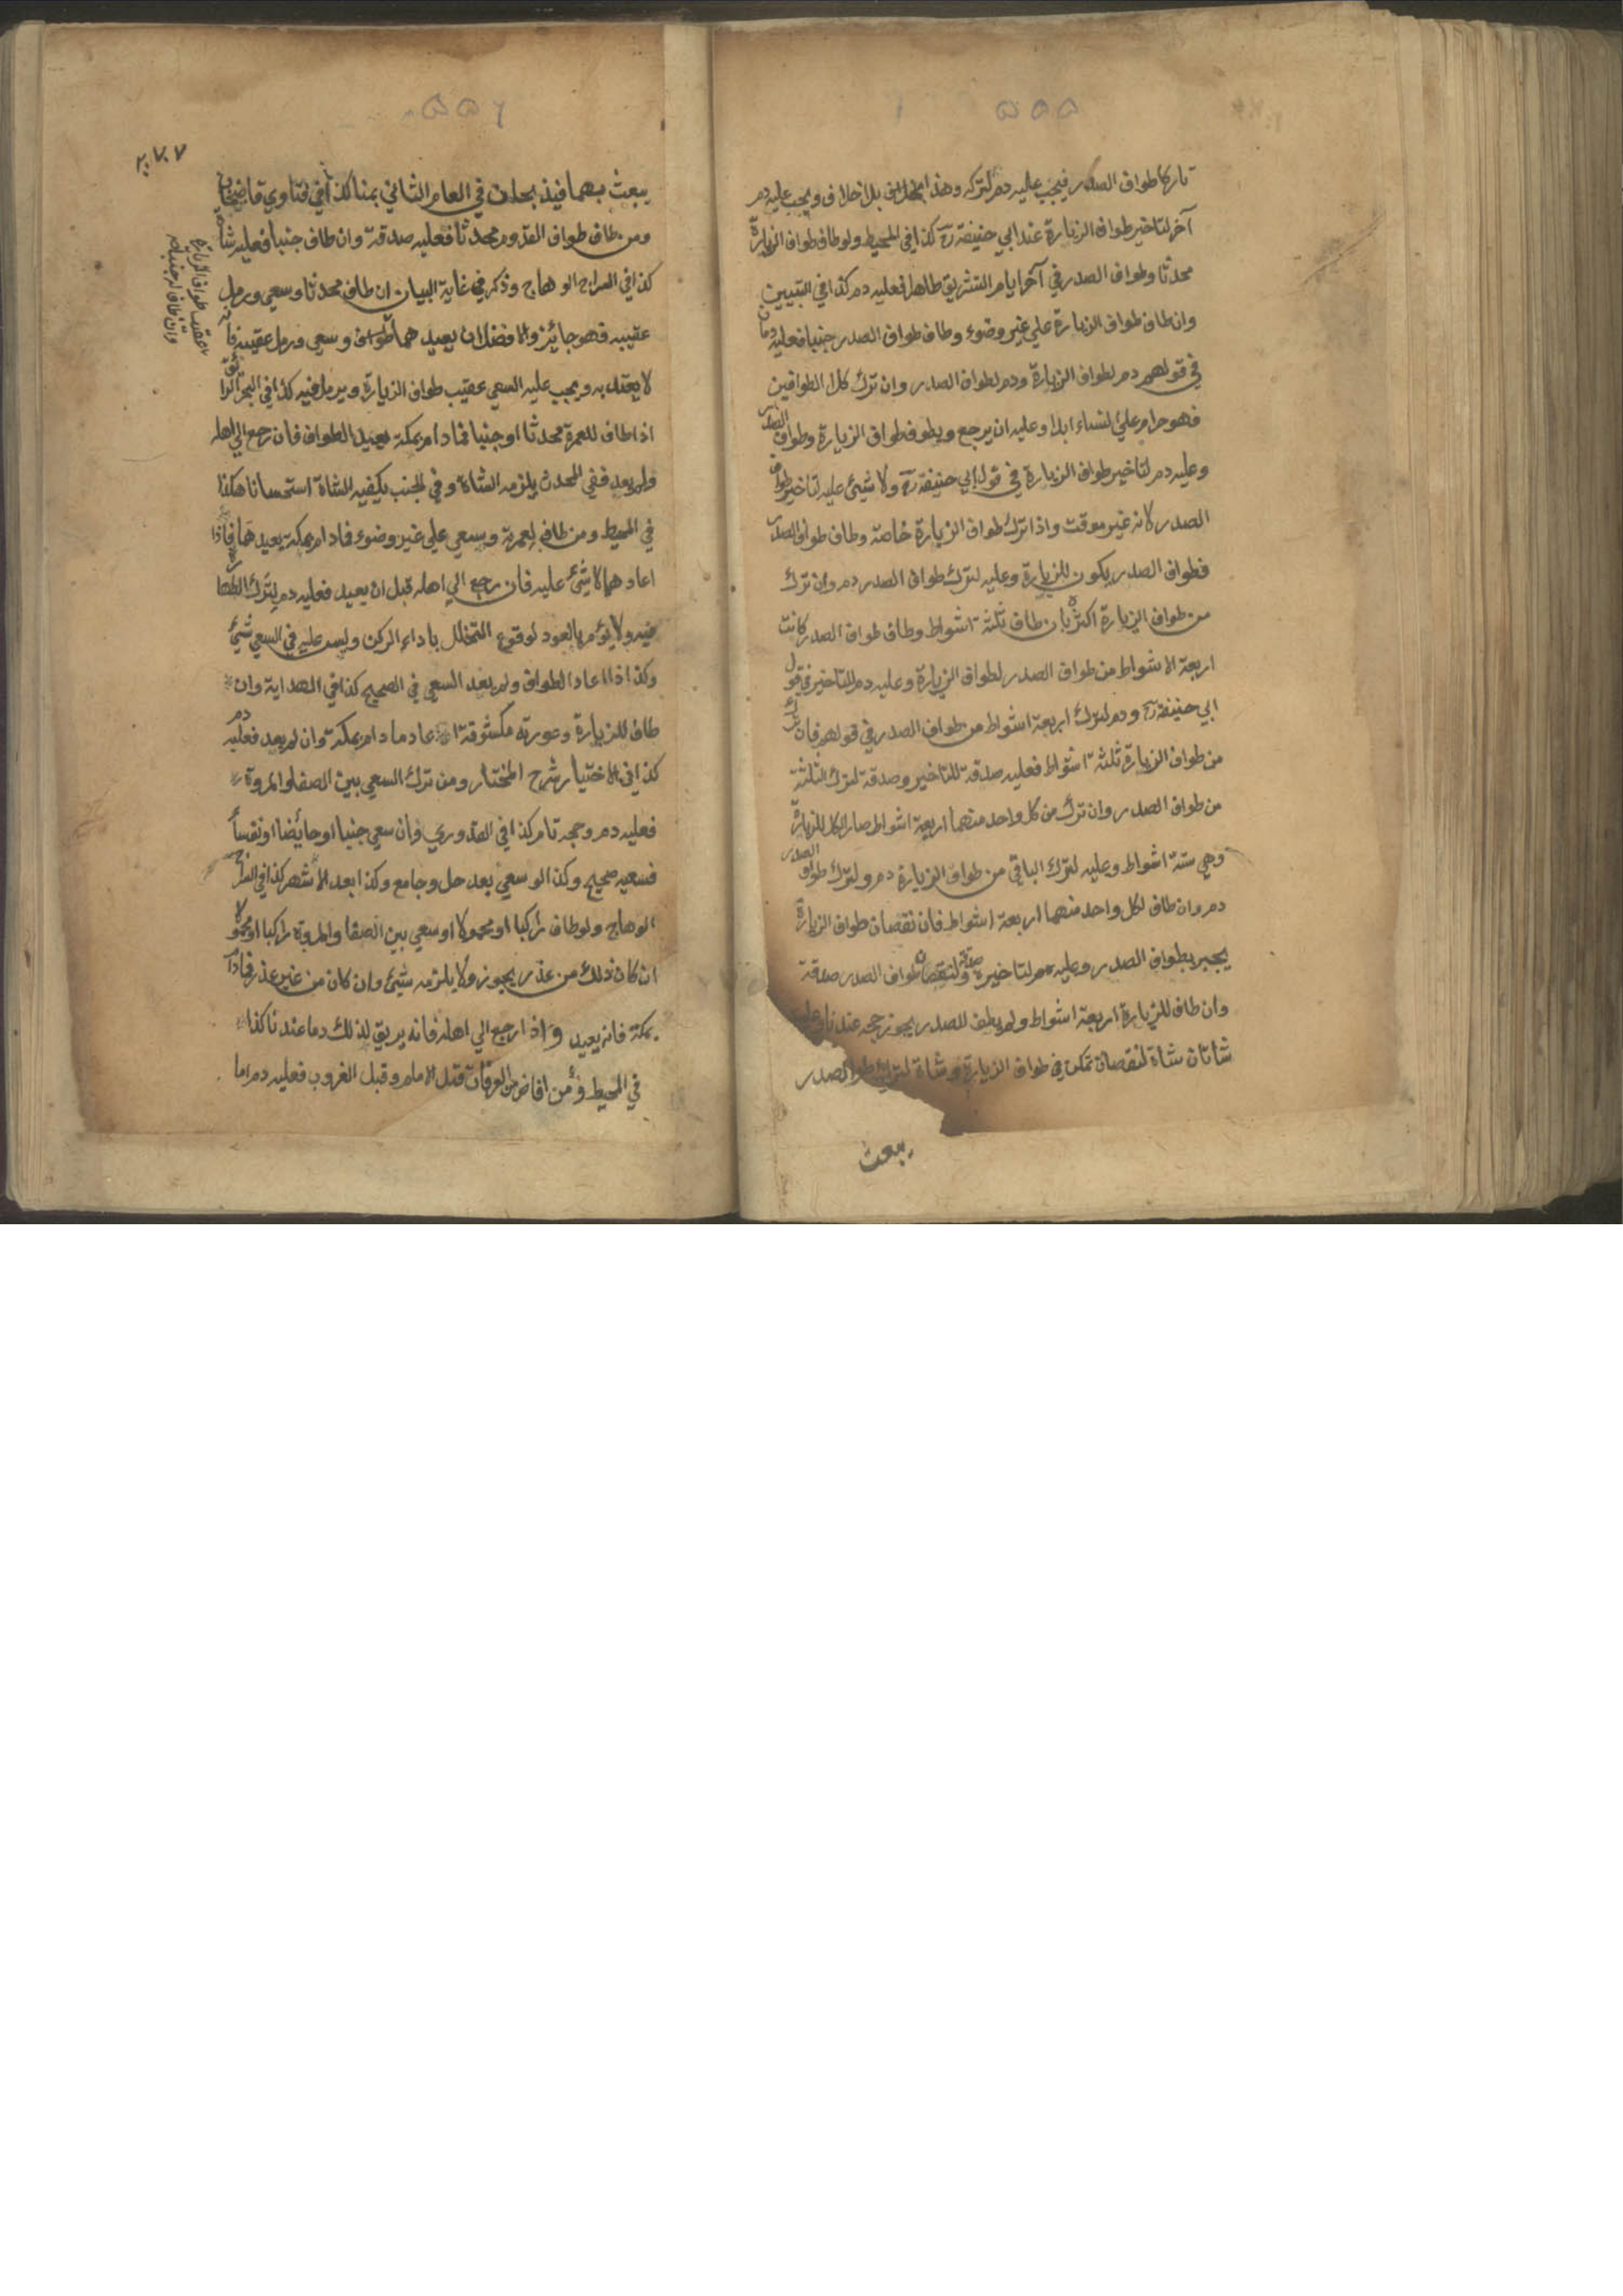 ٥٥٥
تاركا طواف الصدر فيجب عليه دم لتركه وهذا بلا خلاف ويجب عليه دم
آخر لتاخير طواف الزيارة عند ابي حنيفة رح كذا في المحيط ولو طاف طواف الزيارة
محدثا وطواف الصدر في آخر ايام التشريق طاهرا فعليه دم كذا في التبيين
وان طاف طواف الزيارة علي غير وضوء وطاف طواف الصدر جنبا فعليه دمان
في قولهم دم لطواف الزيارة ودم لطواف الصدر وان ترك كلا الطوافين
فهو حرام علي النساء ابدا وعليه ان يرجع ويطوف طواف الزيارة وطواف الصدر
وعليه دم لتاخير طواف الزيارة في قول ابي حنيفة رح ولا شيئ عليه لتاخير طواف
الصدر لانه غير موقت واذا ترك طواف الزيارة خاصة وطاف طواف الصدر
فطواف الصدر يكون للزيارة وعليه لترك طواف الصدر دم وان ترك
من طواف الزيارة اكثره بان طاف ثلثة اشواط وطاف طواف الصدر كانت
اربعة الاشواط من طواف الصدر لطواف الزيارة وعليه دم للتاخير في قول
ابي حنيفة رح ودم لترك اربعة اشواط من طواف الصدر في قولهم فان ترك
من طواف الزيارة ثلثة اشواط فعليه صدقة للتاخير وصدقة لترك الثلثة
من طواف الصدر وان ترك من كل واحد منهما اربعة اشواط صار الكل للزيارة
وهي ستة اشواط وعليه لترك الباقي من طواف الزيارة دم ولترك طواف الصدر
دم وان طاف لكل واحد منهما اربعة اشواط فان نقصان طواف الزيارة
يجبر بطواف الصدر وعليه لتاخيره صدقة ولنقصان طواف الصدر صدقة
وان طاف للزيارة اربعة اشواط ولم يطف للصدر يجوز حجه عندنا وعليه
شاتان شاة لنقصان تمكن في طواف الزيارة وشاة لترك طواف الصدر
يبعث
٥٥٦
٢٠٧٠٧
يبعث بهما فيذبحان في العام الثاني بمنا كذا في فتاوي قاضيخان
ومن طاف طواف القدوم محدثا فعليه صدقة وان طاف جنبا فعليه شاة
كذا في السراج الوهاج وذكر في غاية البيان ان طاف محدثا وسعي ورمل
عقيبه فهو جائز والافضل ان يعيدهما عقيب طواف الزيارة وان طاف له جنبا وسعي ورمل عقيبه فانه
لا يعتد به ويجب عليه السعي عقيب طواف الزيارة ويرمل فيه كذا في البحر الرائق
اذا طاف للعمرة محدثا او جنبا فما دام بمكة يعيد الطواف فان رجع الي اهله
ولم يعد ففي المحدث يلزمه الشاة وفي الجنب يكفيه الشاة استحسانا هكذا
في المحيط ومن طاف لعمرته وسعي علي غير وضوء فما دام بمكة يعيدهما فاذا
اعادهما لا شيئ عليه فان رجع الي اهله قبل ان يعيد فعليه دم لترك الطهارة
فيه ولا يؤمر بالعود لوقوع التحلل باداء الركن وليس عليه في السعي شيئ
وكذا اذا اعاد الطواف ولم يعد السعي في الصحيح كذا في الهداية وان
طاف للزيارة وعورته مكشوفة اعاد ما دام بمكة وان لم يعد فعليه دم
كذا في الاختيار شرح المختار ومن ترك السعي بين الصفا والمروة
فعليه دم وحجه تام كذا في القدوري وان سعي جنبا او حائضا او نفساء
فسعيه صحيح وكذا لو سعي بعد حل وجامع وكذا بعد الاشهر كذا في السراج
الوهاج ولو طاف راكبا او محمولا او سعي بين الصفا والمروة راكبا او محمولا
ان كان ذلك من عذر يجوز ولا يلزمه شيئ وان كان من غير عذر فما دام
بمكة فانه يعيد واذا رجع الي اهله فانه يريق لذلك دما عندنا كذا
في المحيط ومن افاض من العرفات قبل الامام وقبل الغروب فعليه دم اما